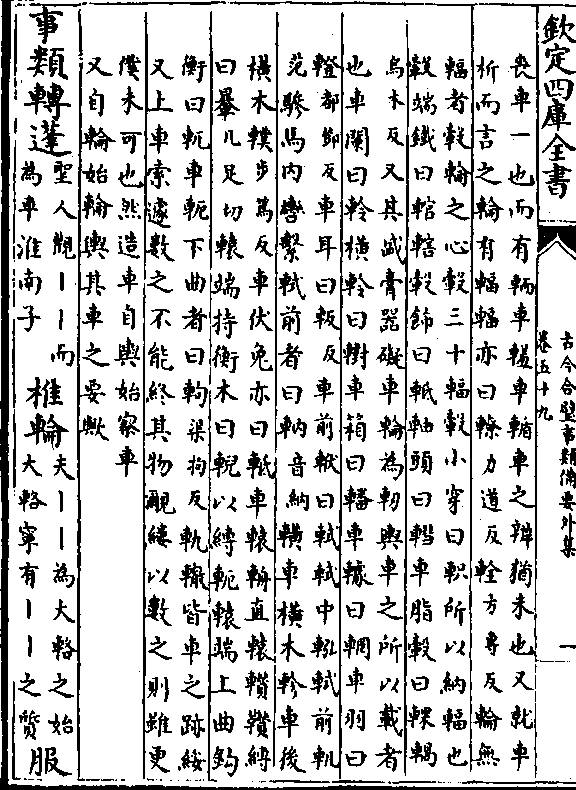 欽定四庫全書
古今合璧事類備要外集
卷五十九
一
喪車一也而有輌車轀車輴車之辨猶未也又就車
析而言之輪有輻輻亦曰轑力道反輇方専反輪無
輻者轂輪之心轂三十輻轂小穿曰軹所以納輻也
轂端鐵曰輨轄轂飾曰軝軸頭曰轊車脂轂曰輠輞
烏木反又其盛膏器礙車輪為軔輿車之所以載者
也車闌曰軨横軨曰轛車箱曰轓車轑曰輖車羽曰
軬部鄙反車耳曰䡊反車前軾曰軾軾中軓軾前軓
范驂馬内轡繫軾前者曰軜音納䡽車横木軫車後
横木轐步篤反車伏兔亦曰軝車轅輈直轅轒鑽縛
曰𨏥几足切轅端持衡木曰輗以縛軛轅端上曲鈎
衡曰軛車軛下曲者曰軥渠拘反軌轍皆車之跡綏
又上車索遽數之不能終其物覼縷以數之則雖更
僕未可也然造車自輿始察車
又自輪始輪輿其車之要歟
事類轉蓬 聖人觀丨丨而
為車淮南子 椎輪 夫丨丨為大輅之始
大輅寧有丨丨之質 服